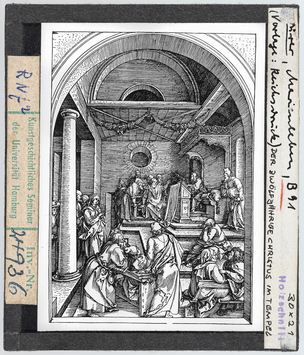 Dürer, Marienleben, B 91
(Vorlage: Reichsdruck) DER ZWÖLFJÄHRIGE CHRISTUS IM TEMPEL
Holzschnitt
Kunstgeschichtliches Seminar
der Universität Hamburg
Inv.-Nr.